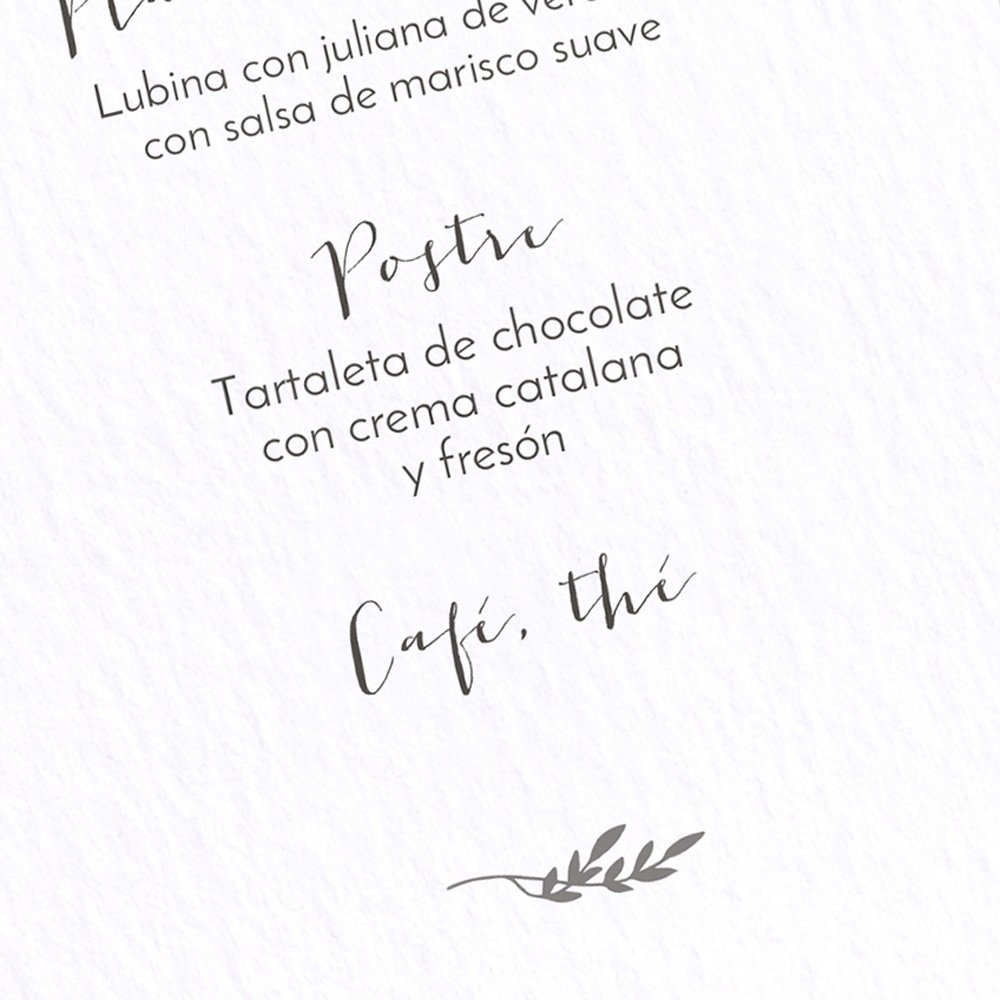 Lubina con juliana de
con salsa de marisco suave
Postre
Tartaleta de chocolate
con crema catalana
y fresón
Café, thé